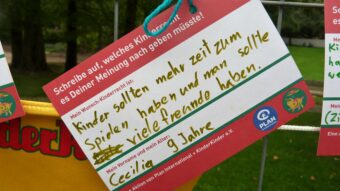 Schreibe auf, welches Kinderrecht
es Deiner Meinung nach geben müsste!
Mein Wunsch-Kinderrecht ist:
Kinder sollten mehr zeit zum
Spielen haben und man sollte
viele freunde haben.
Mein Vorname und mein Alter:
Cecilia 9 Jahre
Aktion von Plan International + KinderKinder e.V.
PLAN